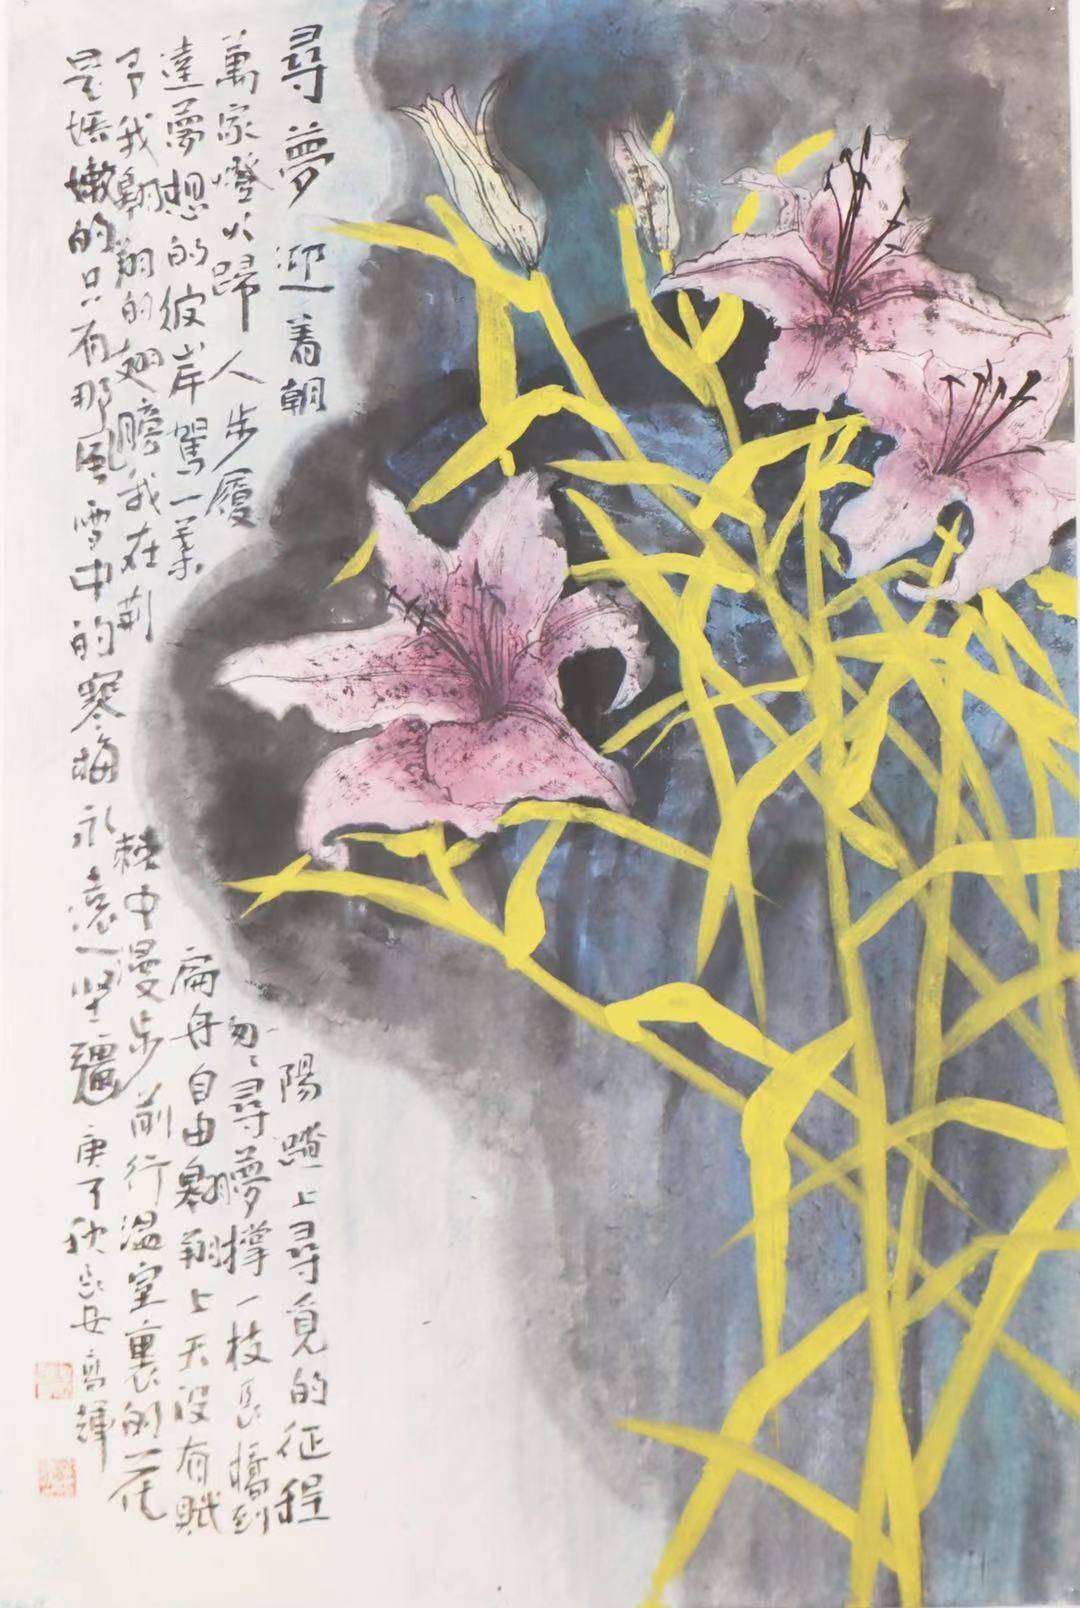 尋夢 迎着朝陽踏上尋覓的征程
萬家燈火歸人步履匆匆尋夢撑一枝長橋到
達夢想的彼岸駕一葉扁舟自由翱翔上天没有賦
予我翱翔的翅膀我在荆棘中漫步前行温室裏的花
是嬌嫩的只有那風雪中的寒梅永遠堅疆 庚子秋 長安 高輝